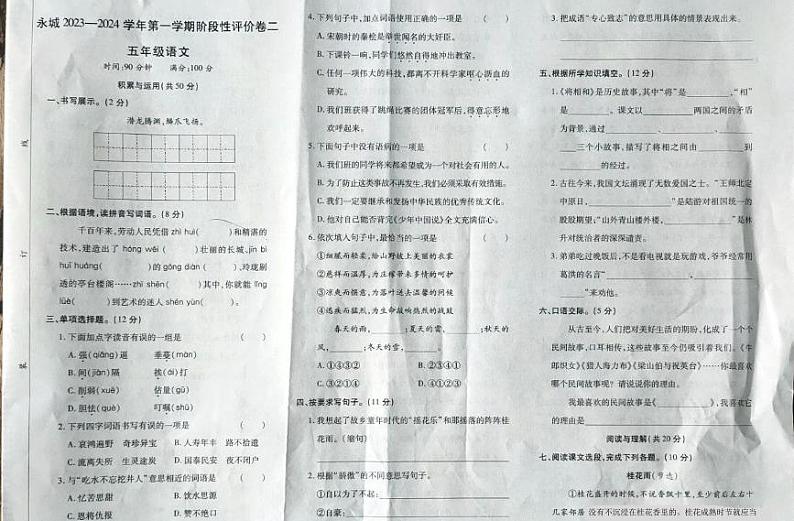 永城 2023—2024 学年第一学期阶段性评价卷二
五年级语文
时间:90 分钟 满分:100 分
积累与运用(共 50 分)
一、书写展示。(2 分)
潜龙腾渊,鳞爪飞扬。
二、根据语境,读拼音写词语。(8 分)
千百年来,劳动人民凭借 zhì huì( )和精湛的
技术,建造出了 hóng wěi ( )壮丽的长城,jīn bì
huī huáng( )的 gōng diàn ( ),玲珑剔
透的亭台楼阁……zhì shēn( )其中,你就能 lǐng
lüè( )到艺术的迷人 shén yùn( )。
三、单项选择题。(12 分)
1. 下面加点字读音有误的一组是 ( )
A. 强(qiǎng)逼 垂蔓(màn)
B. 间(jiàn)隔 挨(ái)打
C. 削弱(xuē) 估量(gū)
D. 胆怯(què) 叮嘱(zhǔ)
2. 下列四字词语书写有误的一项是 ( )
A. 哀鸿遍野 奇珍异宝 B. 人寿年丰 路不拾遗
C. 流离失所 生灵途炭 D. 国泰民安 夜不闭户
3. 与“吃水不忘挖井人”意思相近的词语是 ( )
A. 忆苦思甜 B. 饮水思源
C. 恩将仇报 D. 赞不绝口
4. 下列句子中,加点词语使用正确的一项是 ( )
A. 宋朝时的秦桧是举世闻名的大奸臣。
B. 下课铃一响,同学们悠然自得地冲出教室。
C. 任何一项伟大的科技,都离不开科学家呕心沥血的
研究。
D. 我们班获得了跳绳比赛的团体冠军后,得意忘形地
欢呼起来。
5. 下面句子中没有语病的一项是 ( )
A. 我们班的同学将来都希望成为一个对社会有用的人。
B. 为了防止这类事故不再发生,我们必须采取有效措施。
C. 我们一定要继承和发扬中华民族的优秀传统文化。
D. 他对自己能否背完《少年中国说》全文充满信心。
6. 依次填入句子中,最恰当的一项是 ( )
①细腻而轻柔,给山野披上美丽的衣裳
②慈祥而温厚,为庄稼带来多情的呵护
③凉爽而惬意,为落叶送去温馨的问候
④迅疾而猛烈,为生命敲响热烈的战鼓
春天的雨,______;夏天的雷,______;秋天的
风,______;冬天的雪,______。
A. ①④③② B. ②④③①
C. ③②①④ D. ④①②③
四、按要求写句子。(11 分)
1. 我想起了故乡童年时代的“摇花乐”和那摇落的阵阵桂
花雨。(缩句)
2. 根据“骄傲”的不同意思写句子。
①自以为了不起:
②自豪:
3. 把成语“专心致志”的意思用具体的情景表现出来。
五、根据所学知识填空。(12 分)
1.《将相和》是历史故事,其中“将”是______,“相”
是______。课文以______两国之间的矛盾
为背景,通过______、______、
______三个小故事,描写了将相之间由______到
______的经过。
2. 古往今来,我国文坛涌现了无数爱国之士。“王师北定
中原日,______”是陆游对祖国统一的
殷殷期望;“山外青山楼外楼,______”是林
升对统治者的深深谴责。
3. 弟弟吃过晚饭后,不是看电视就是玩游戏,爷爷经常用
葛洪的名言“______,
______”来劝他。
六、口语交际。(5 分)
从古至今,人们把对美好生活的期盼,化成了一个个
民间故事,口耳相传,这些故事至今仍吸引着我们。《牛
郎织女》《猎人海力布》《梁山伯与祝英台》……你最喜欢
哪个民间故事呢?请说说你的理由。
我最喜欢的民间故事是《______》,我喜欢它
的理由是
阅读与理解(共 20 分)
七、阅读课文选段,完成下列各题。(10 分)
桂花雨(节选)
①桂花盛开的时候,不说香飘十里,至少前后左右十
几家邻居 没有不沉浸在桂花香里的。桂花成熟时节就应当
线
订
装